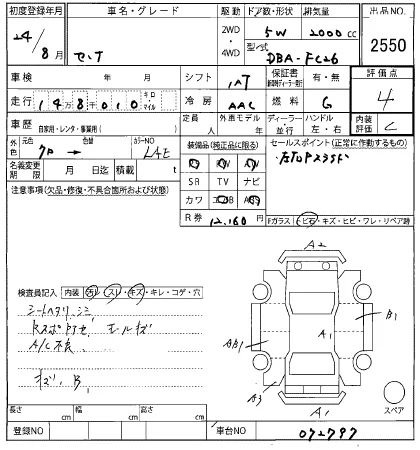 初度登録年月 車名・グレード 駆動 ドア数・形状 排気量 出品NO.
24/8月 セレナ 2WD・4WD 5W 2000cc 2550
型式 DBA-FC26
車検 年 月 シフト IAT 保証書 有・無 評価点
走行 148千010 キロ・マイル 冷房 AAC 燃料 G 4
車歴 自家用・レンタ・事業用( ) 定員 人 外車モデル 年 ディーラー・並行 ハンドル 左・右 内装評価 C
外色 元色 色替 カラーNO LAE 装備品(純正品に限る) セールスポイント(正常に作動するもの)
名義変更期限 月 日迄 積載 t SR TV ナビ
注意事項(欠品・修復・不具合箇所および状態) カワ
R券 12,160円 Fガラス トビ石・キズ・ヒビ・ワレ・リペア跡
検査員記入 内装 汚レ・スレ・キズ・キレ・コゲ・穴
A2
A/C不良
A1 B1
AB1
キズ、B1
A3
A1
スペア
長さ cm 幅 cm 高さ cm
登録NO 車台NO 072797